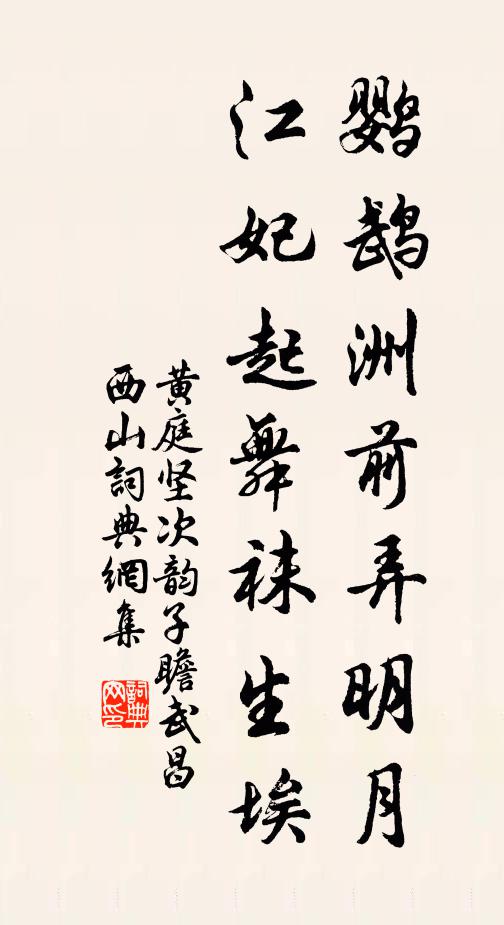 鸚鵡洲前弄明月
江妃起舞袜生埃
黄庭坚次韵子瞻武昌
西山詞典網集
詞典
网印